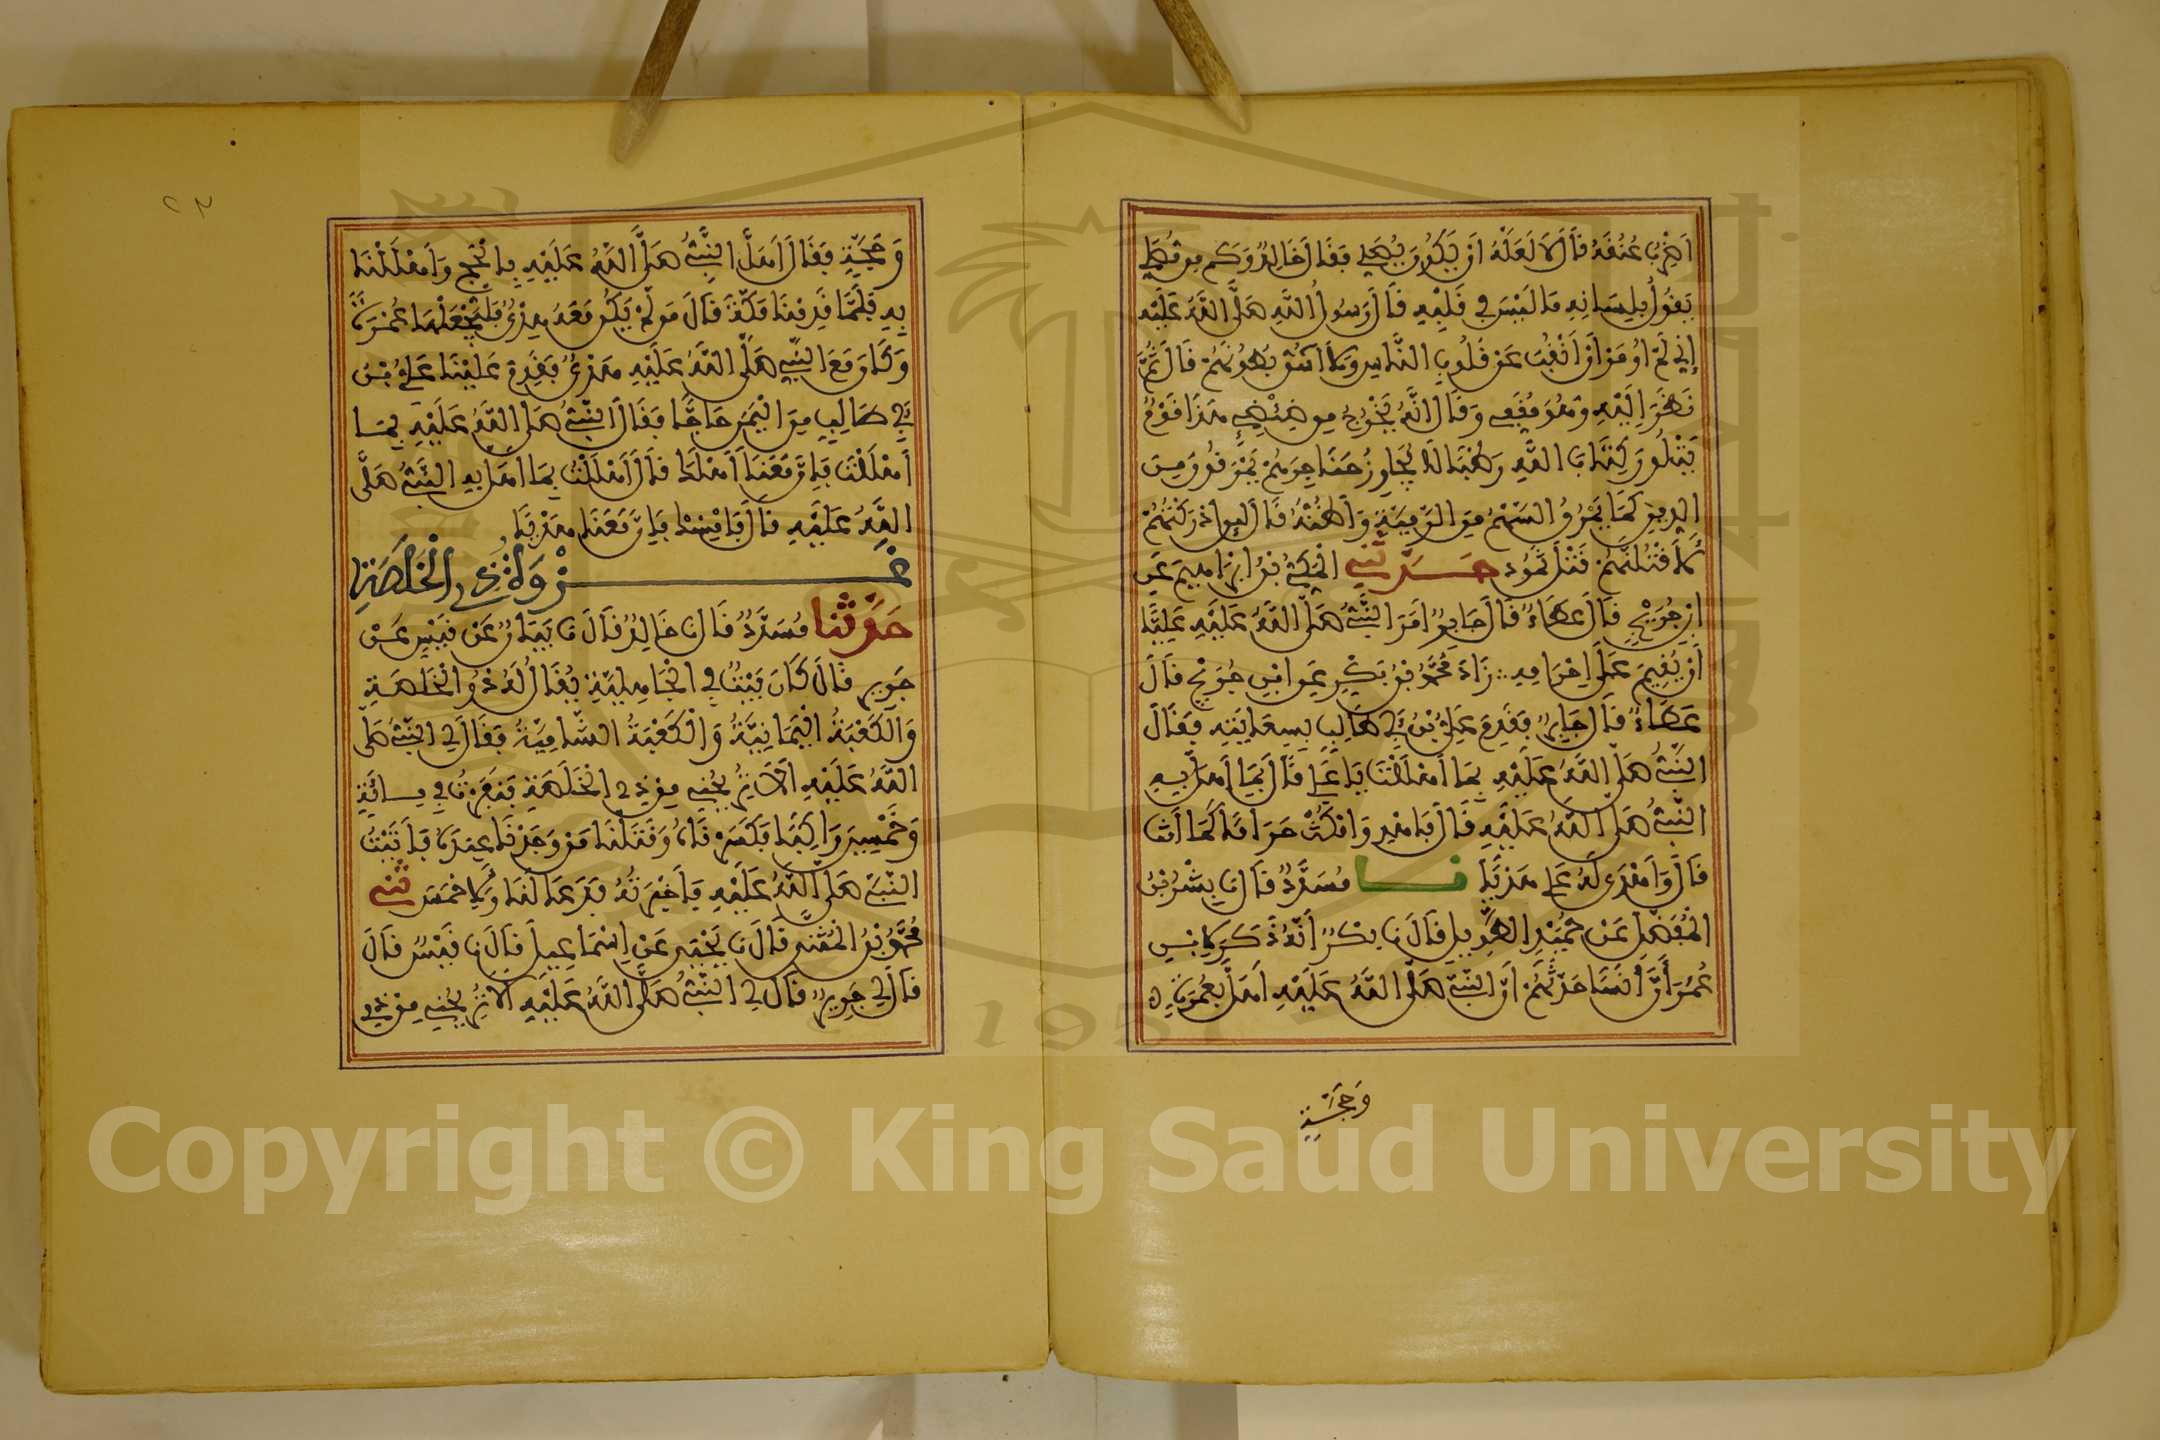 اَضْرِبُ عُنُقَهُ قَالَ لَا لَعَلَّهُ اَنْ يَكُونَ يُصَلِّي فَقَالَ خَالِدٌ وَكَم مِن مُصَلٍّ
يَقُولُ بِلِسَانِهِ مَا لَيْسَ فِي قَلْبِهِ قَالَ رَسُولُ اللَّهِ صَلَّى اللَّهُ عَلَيْهِ
إِنِّي لَمْ اُومَرْ اَنْ اَنْقُبَ عَنْ قُلُوبِ النَّاسِ وَلَا اَشُقَّ بُطُونَهُمْ قَالَ ثُمَّ
نَظَرَ اِلَيْهِ وَهُوَ مُقَفٍّ وَقَالَ انَّهُ يَخْرُجُ مِن ضِئْضِئِ هَذَا قَوْمٌ
يَتْلُونَ كِتَابَ اللَّهِ رَطْبًا لَا يُجَاوِزُ حَنَاجِرَهُمْ يَمْرُقُونَ مِنَ
الدِّينِ كَمَا يَمْرُقُ السَّهْمُ مِنَ الرَّمِيَّةِ وَاَظُنُّهُ قَالَ لَئِن اَدْرَكْتُهُمْ
لَاَقْتُلَنَّهُمْ قَتْلَ ثَمُودَ حَدَّثَنِي الْمَكِّيُّ بْنُ اِبْرَاهِيمَ عَنِ
ابْنِ جُرَيْجٍ قَالَ عَطَاءٌ قَالَ جَابِرٌ اَمَرَ النَّبِيُّ صَلَّى اللَّهُ عَلَيْهِ عَلِيًّا
اَنْ يُقِيمَ عَلَى اِحْرَامِهِ زَادَ مُحَمَّدُ بْنُ بَكْرٍ عَنِ ابْنِ جُرَيْجٍ قَالَ
عَطَاءٌ قَالَ جَابِرٌ فَقَدِمَ عَلِيُّ بْنُ أَبِي طَالِبٍ بِسِعَايَتِهِ فَقَالَ
النَّبِيُّ صَلَّى اللَّهُ عَلَيْهِ بِمَا اَهْلَلْتَ يَا عَلِيُّ قَالَ بِمَا اَهَلَّ بِهِ
النَّبِيُّ صَلَّى اللَّهُ عَلَيْهِ قَالَ فَاهْدِ وَامْكُثْ حَرَامًا كَمَا اَنْتَ
قَالَ وَاَهْدَى لَهُ عَلِيٌّ هَدْيًا نا مُسَدَّدٌ قَالَ نَا بِشْرُ بْنُ
الْمُفَضَّلِ عَنْ حُمَيْدٍ الطَّوِيلِ قَالَ نَا بَكْرٌ اَنَّهُ ذَكَرَ لِابْنِ
عُمَرَ أَنَّ اَنَسًا حَدَّثَهُمْ اَنَّ النَّبِيَّ صَلَّى اللَّهُ عَلَيْهِ اَهَلَّ بِعُمْرَةٍ
وَحَجَّةٍ
٢٣
وَحَجَّةٍ فَقَالَ اَهَلَّ النَّبِيُّ صَلَّى اللَّهُ عَلَيْهِ بِالْحَجِّ وَاَهْلَلْنَا
بِهِ فَلَمَّا قَدِمْنَا مَكَّةَ قَالَ مَن لَّمْ يَكُن مَعَهُ هَدْيٌ فَلْيَجْعَلْهَا عُمْرَةً
وَكَانَ مَعَ النَّبِيِّ صَلَّى اللَّهُ عَلَيْهِ هَدْيٌ فَقَدِمَ عَلَيْنَا عَلِيُّ بْنُ
أَبِي طَالِبٍ مِنَ الْيَمَنِ حَاجًّا فَقَالَ النَّبِيُّ صَلَّى اللَّهُ عَلَيْهِ بِمَا
اَهْلَلْتَ فَاِنَّ مَعَنَا اَهْلَكَ قَالَ اَهْلَلْتُ بِمَا اَهَلَّ بِهِ النَّبِيُّ صَلَّى
اللَّهُ عَلَيْهِ قَالَ فَاَمْسِكْ فَاِنَّ مَعَنَا هَدْيًا
غَزْوَةُ ذِي الْخَلَصَةِ
حَدَّثَنَا مُسَدَّدٌ قَالَ نَا خَالِدٌ قَالَ نَا بَيَانٌ عَنْ قَيْسٍ عَنْ
جَرِيرٍ قَالَ كَانَ بَيْتٌ فِي الْجَاهِلِيَّةِ يُقَالُ لَهُ ذُو الْخَلَصَةِ
وَالْكَعْبَةُ الْيَمَانِيَّةُ وَالْكَعْبَةُ الشَّامِيَّةُ فَقَالَ لِي النَّبِيُّ صَلَّى
اللَّهُ عَلَيْهِ اَلَا تُرِيحُنِي مِنْ ذِي الْخَلَصَةِ فَنَفَرْتُ فِي مِائَةٍ
وَخَمْسِينَ رَاكِبًا فَكَسَرْنَاهُ وَقَتَلْنَا مَنْ وَجَدْنَا عِنْدَهُ فَاَتَيْتُ
النَّبِيَّ صَلَّى اللَّهُ عَلَيْهِ فَاَخْبَرْتُهُ فَدَعَا لَنَا وَلِاَحْمَسَ ثَنِي
مُحَمَّدُ بْنُ الْمُثَنَّى قَالَ نَا يَحْيَى عَنْ اِسْمَاعِيلَ قَالَ نَا قَيْسٌ قَالَ
قَالَ لِي جَرِيرٌ قَالَ لِي النَّبِيُّ صَلَّى اللَّهُ عَلَيْهِ اَلَا تُرِيحُنِي مِنْ ذِي
Copyright © King Saud University
1957